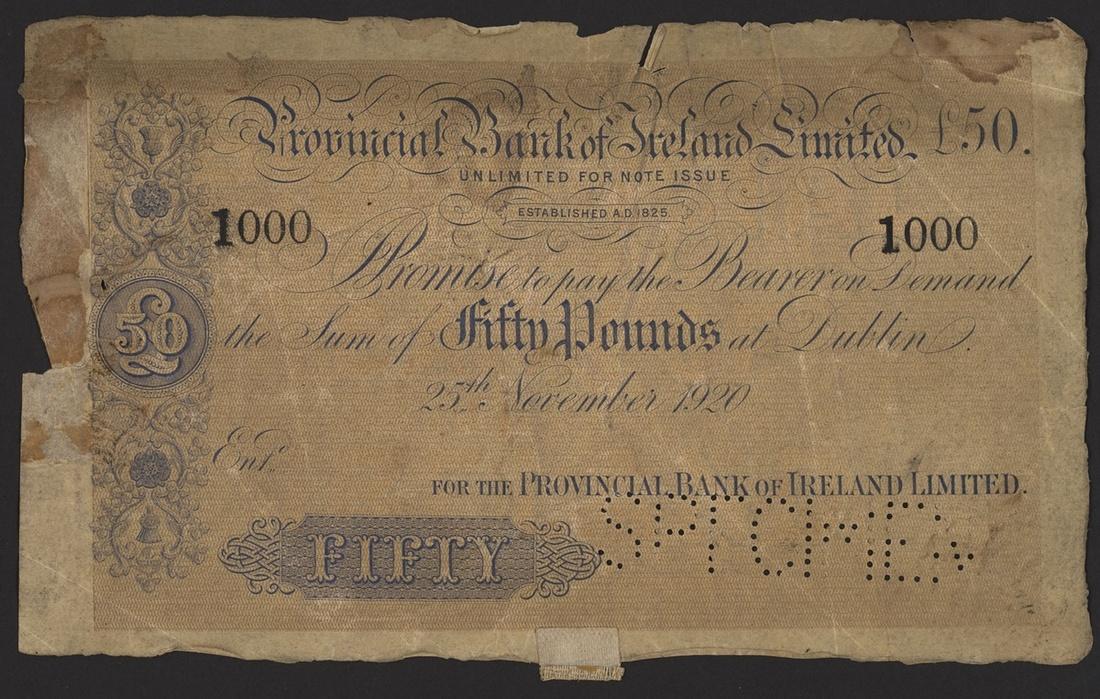 Provincial Bank of Ireland Limited. £50.
UNLIMITED FOR NOTE ISSUE
ESTABLISHED A.D. 1825.
1000 1000
I Promise to pay the Bearer on Demand
£50 the Sum of Fifty Pounds at Dublin.
25th November 1920
Entd.
FOR THE PROVINCIAL BANK OF IRELAND LIMITED.
SPECIMEN
FIFTY